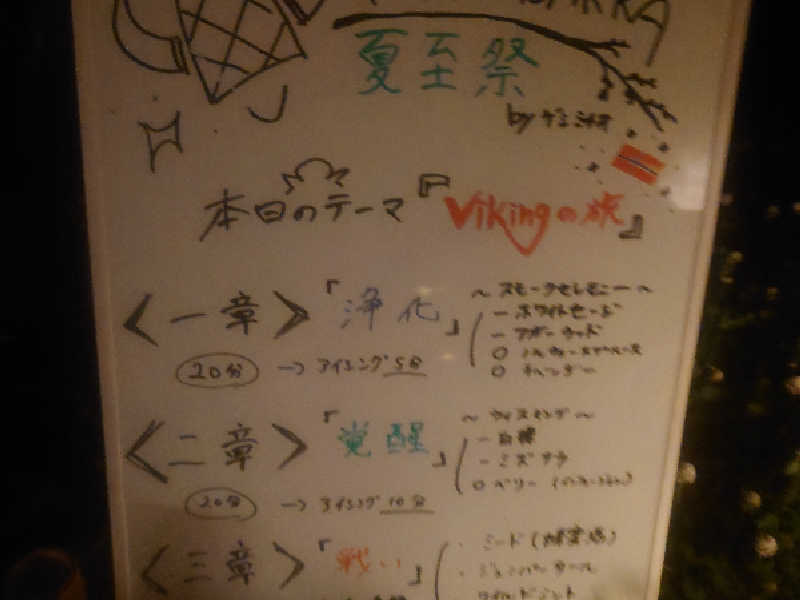 夏至祭
by ケミヤオ
本日のテーマ『Vikingの旅』
<一章>「浄化」
~スモークセレモニー~
ーホワイトセージ
ーアガーウッド
20分 → アイシング 5分
<二章>「覚醒」
~ウィスキング~
ー白樺
ーミズナラ
○ベリー
20分 → アイシング 10分
<三章>「戦い」
・ミード
・ジュニパーエール
ワイルドミント